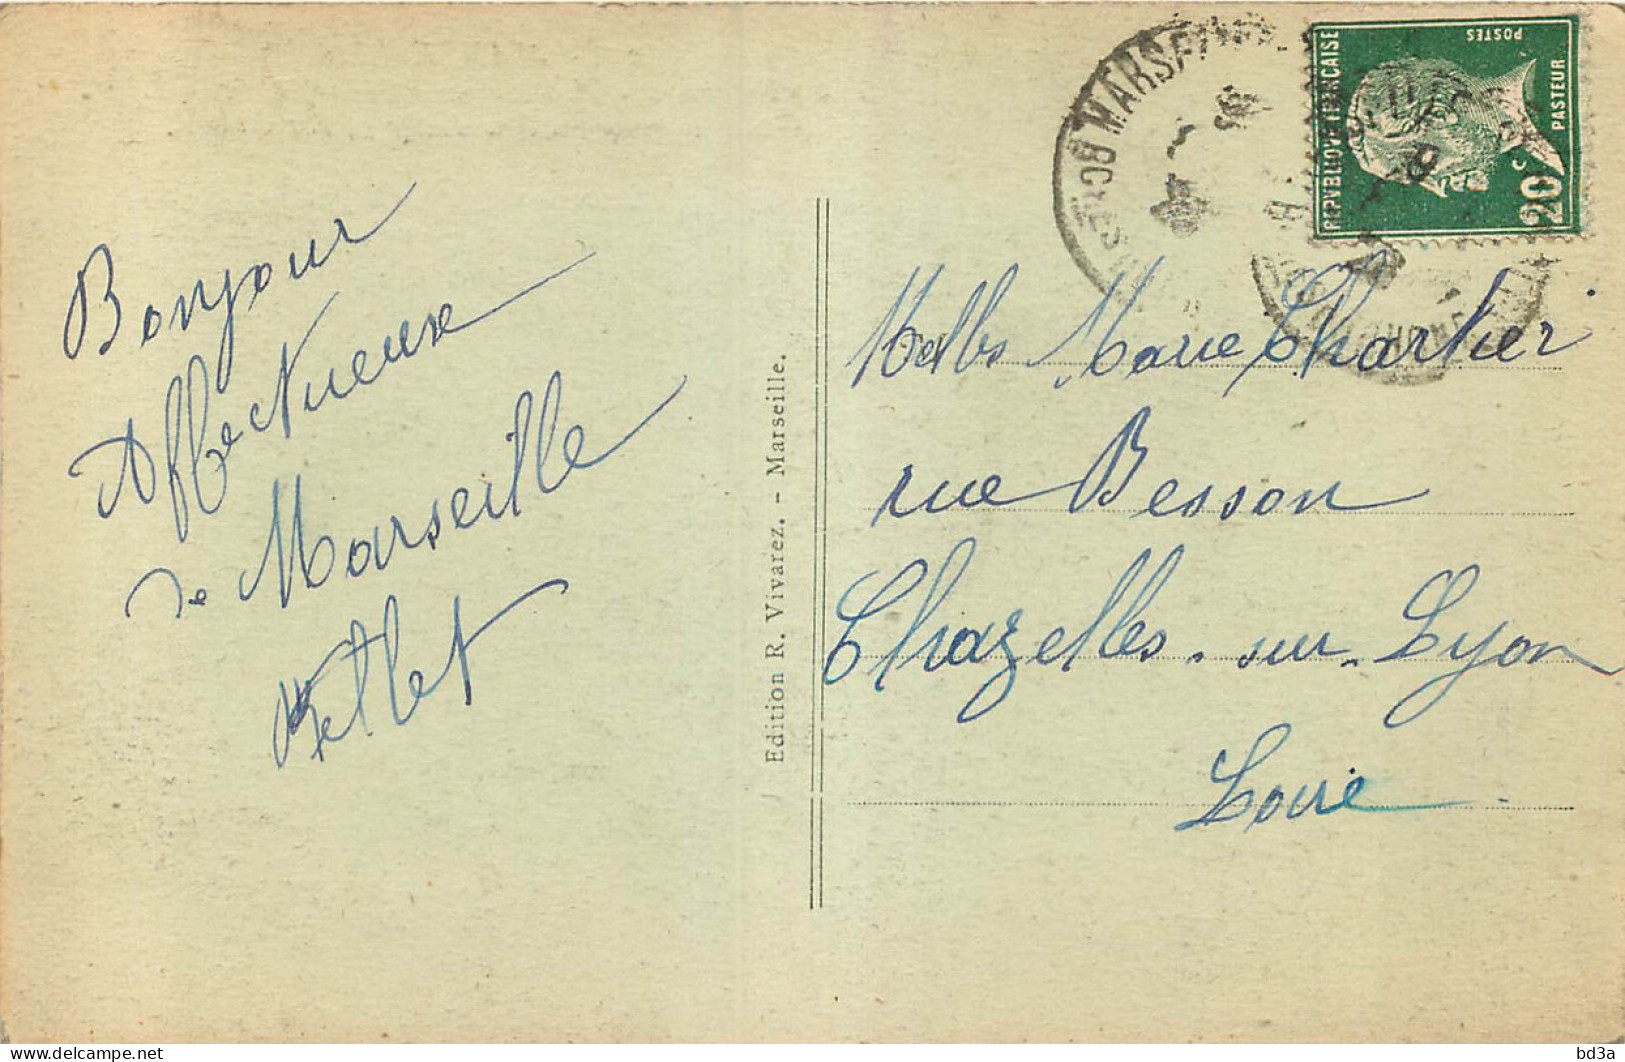 Bonjour
Affectueuse
de Marseille
Edition R. Vivarez. – Marseille.
MARSEILLE
REPVBLIQVE FRANÇAISE
POSTES
PASTEUR
20 c
Melles Marie Charlier
rue Besson
Chazelles-sur-Lyon
Loire
bd3a